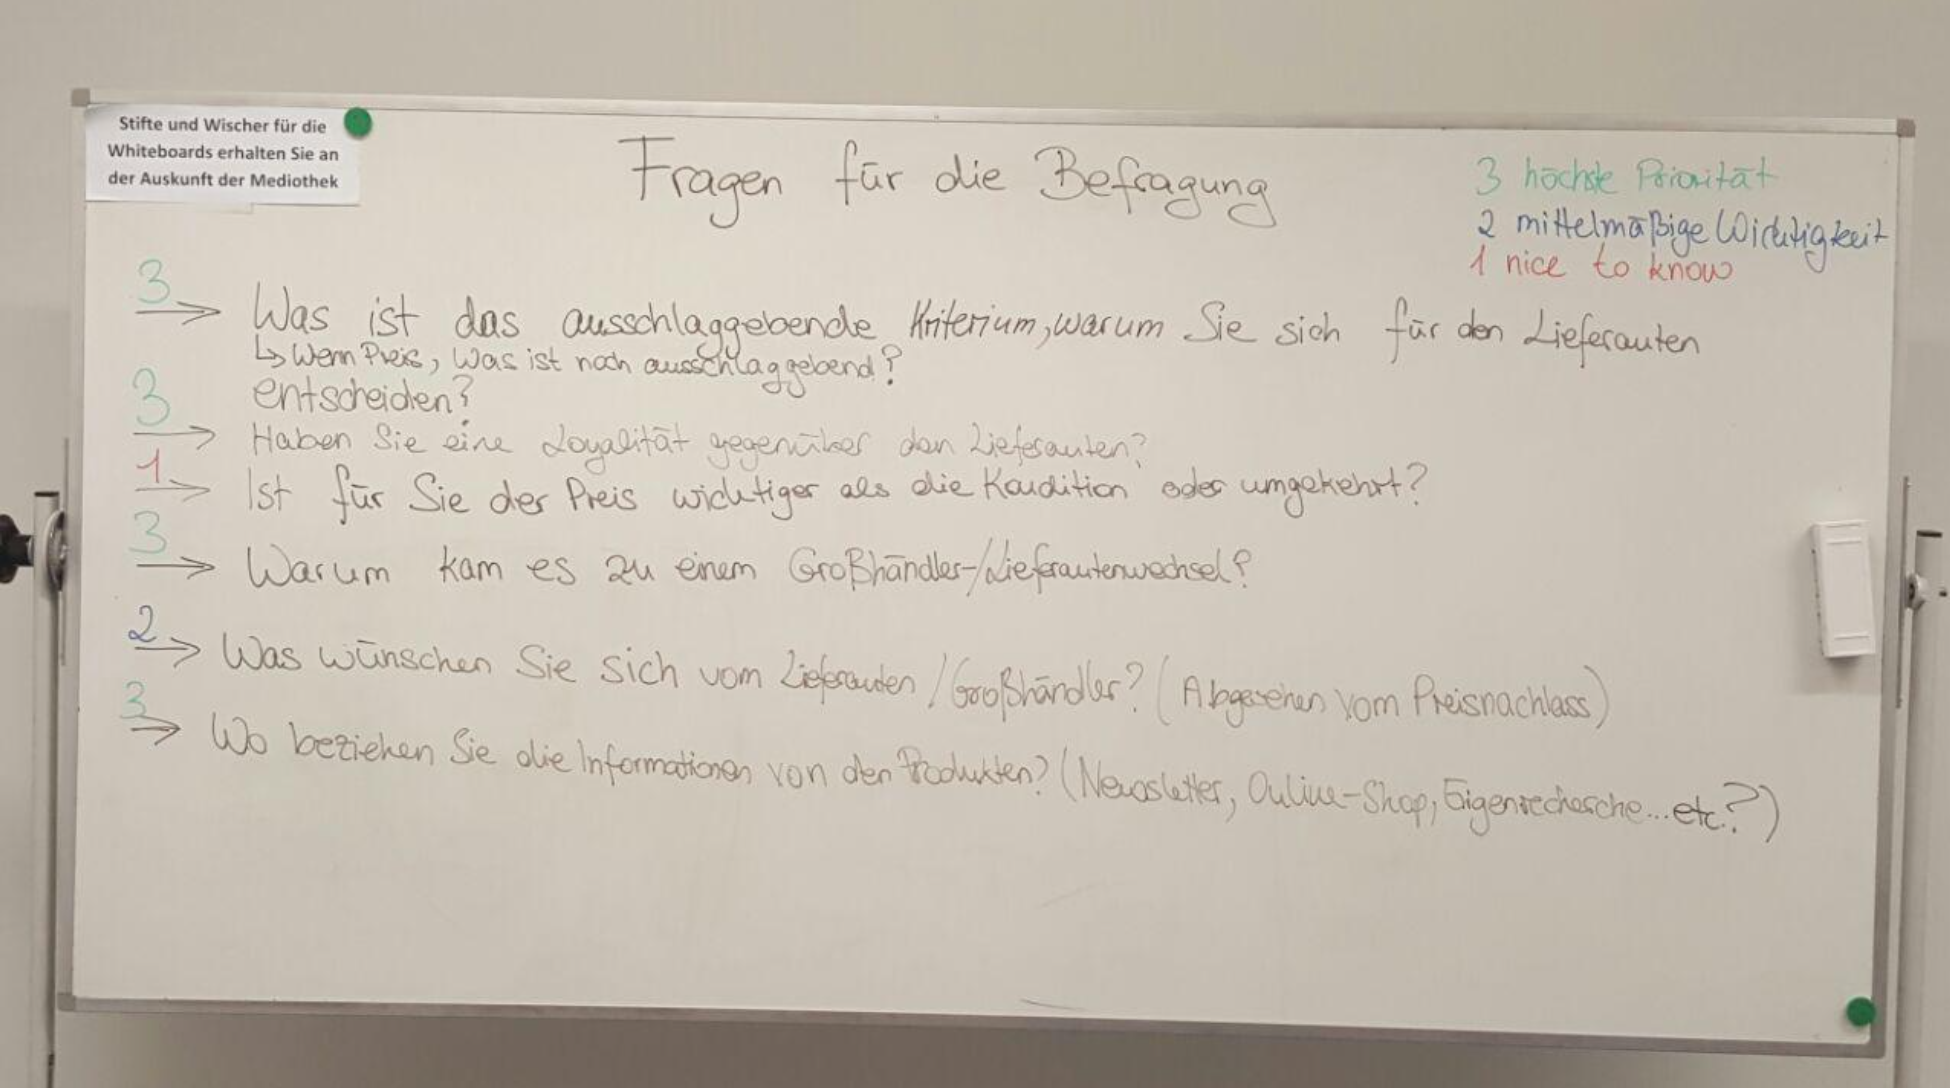 Stifte und Wischer für die
Whiteboards erhalten Sie an
der Auskunft der Mediothek
Fragen für die Befragung
3 höchste Priorität
2 mittelmäßige Wichtigkeit
1 nice to know
3 → Was ist das ausschlaggebende Kriterium, warum Sie sich für den Lieferanten
↳ Wenn Preis, Was ist noch ausschlaggebend?
entscheiden?
3 → Haben Sie eine Loyalität gegenüber den Lieferanten?
1 → Ist für Sie der Preis wichtiger als die Kondition oder umgekehrt?
3 → Warum kam es zu einem Großhändler-/Lieferantenwechsel?
2 → Was wünschen Sie sich vom Lieferanten / Großhändler? (Abgesehen vom Preisnachlass)
3 → Wo beziehen Sie die Informationen von den Produkten? (Newsletter, Online-Shop, Eigenrecherche... etc.?)